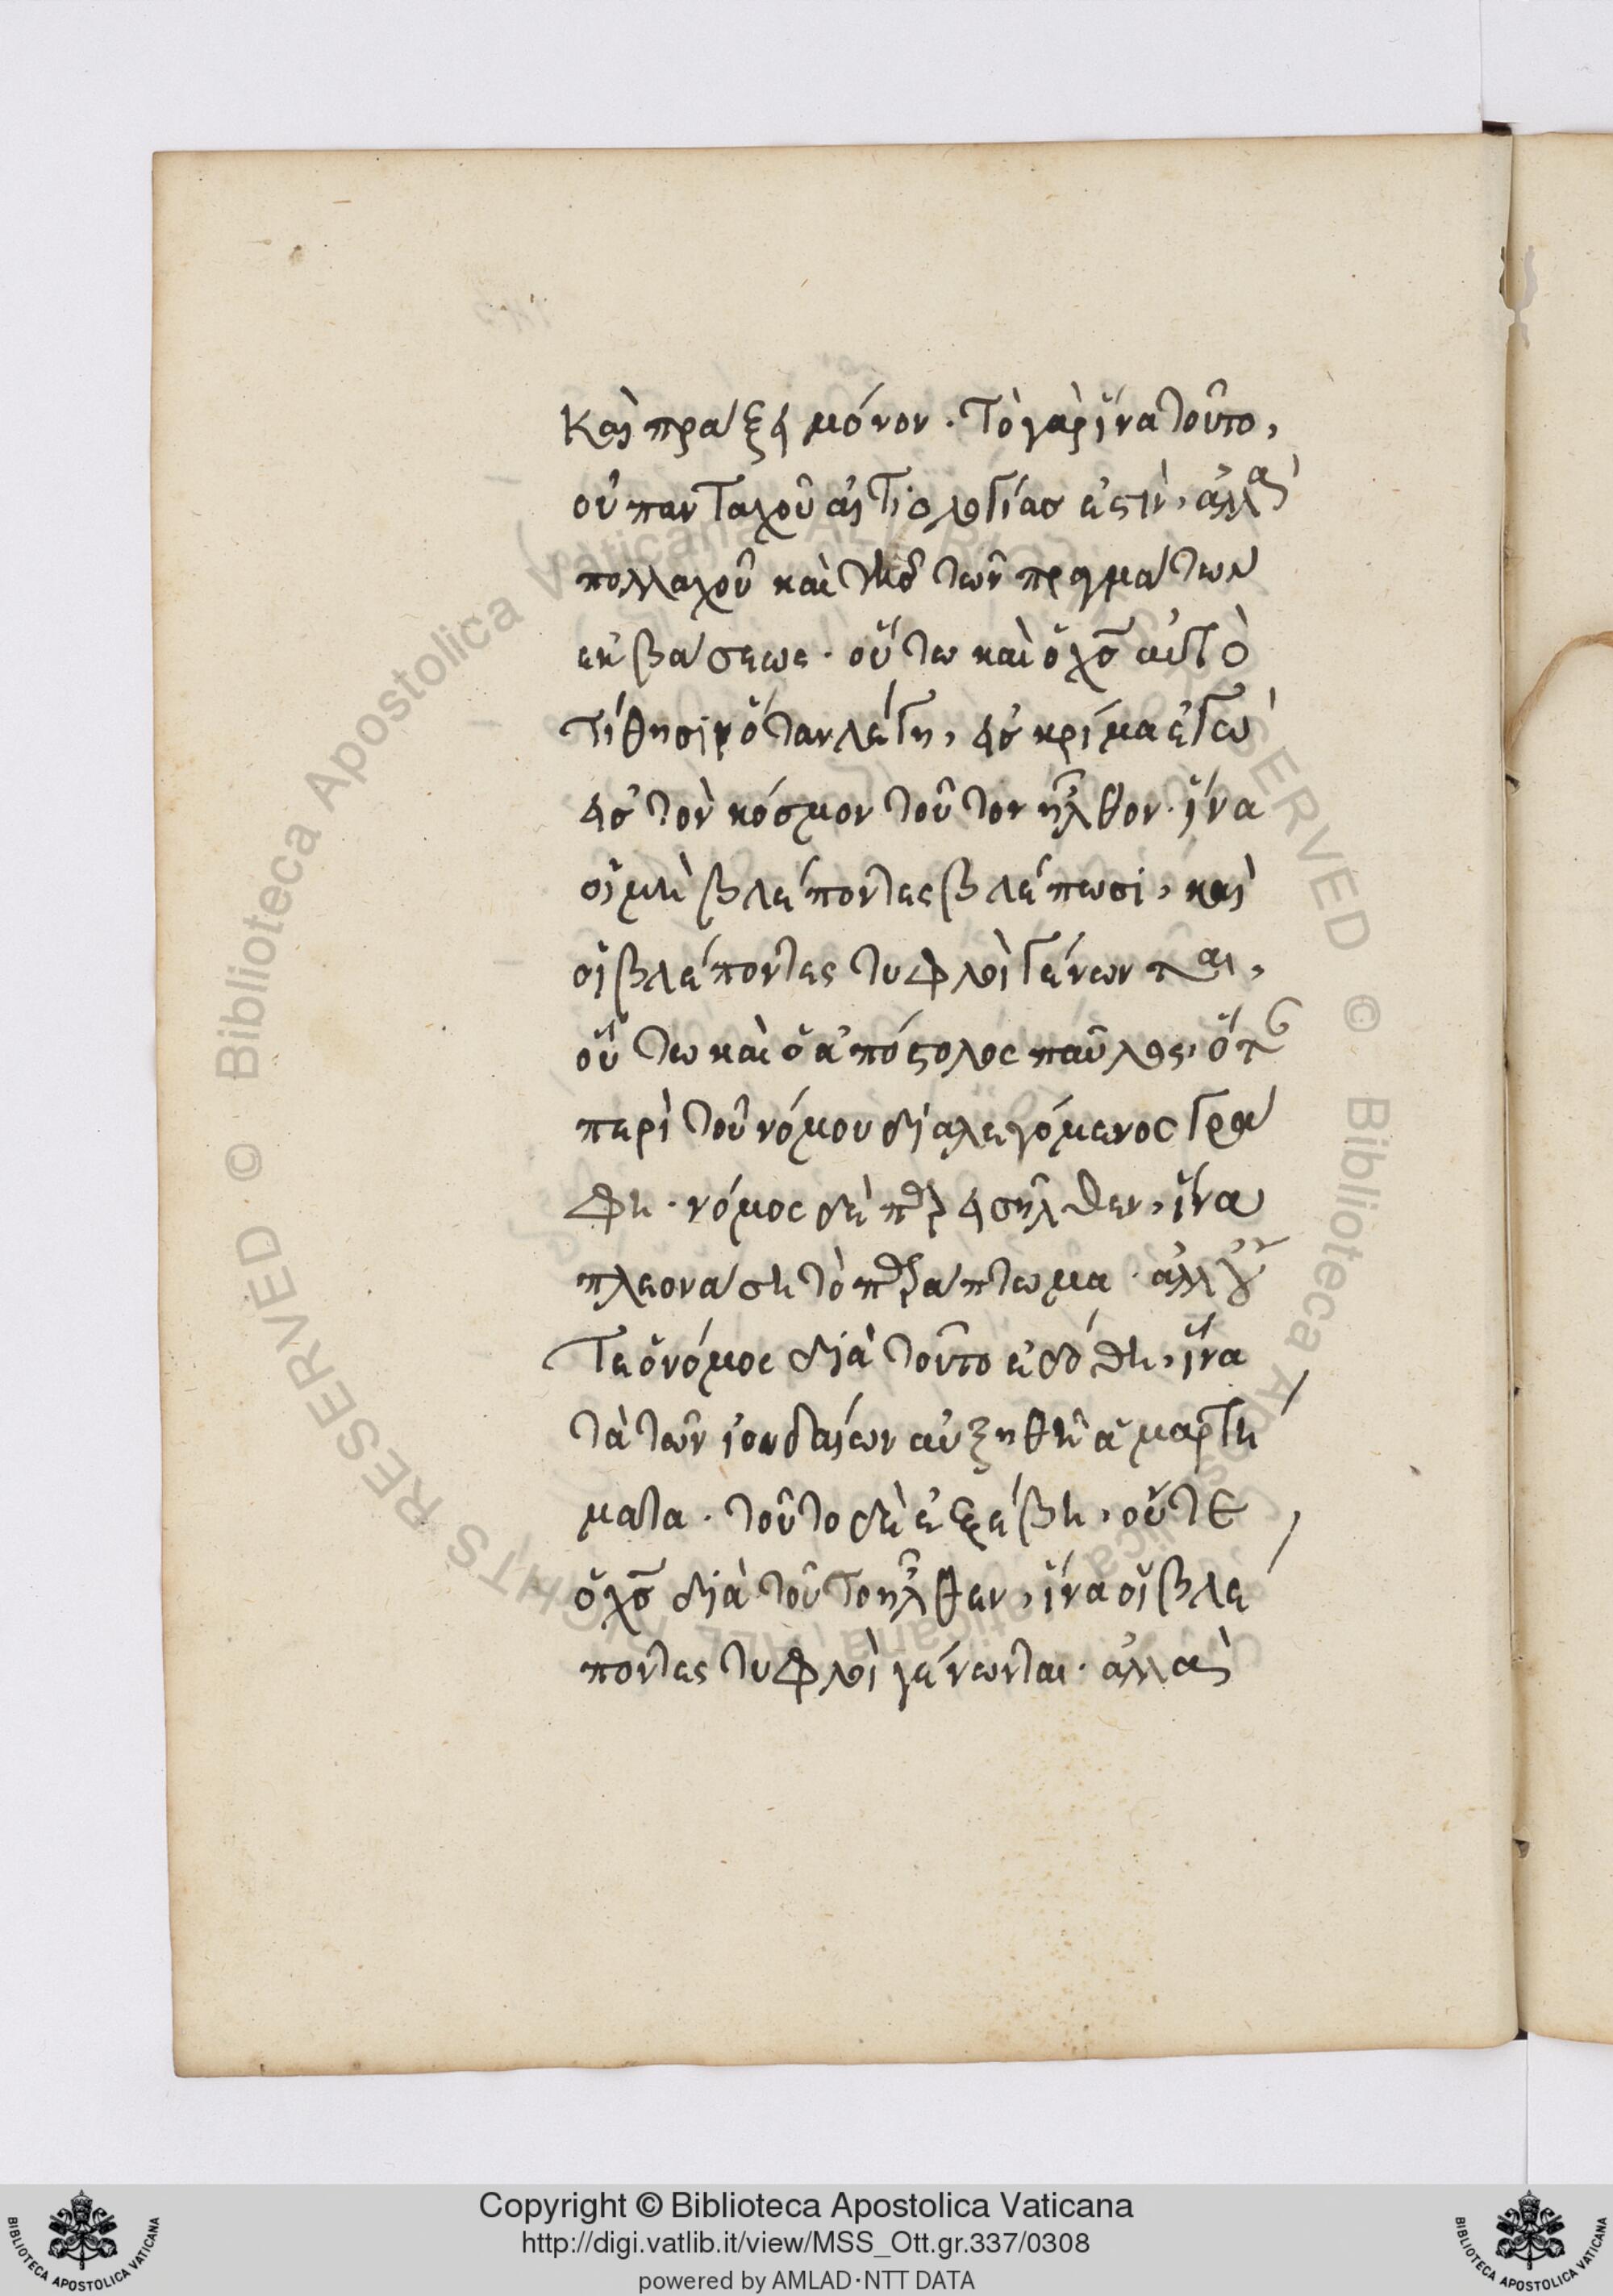 καὶ πράξει μόνον· τὸ γὰρ ἵνα τοῦτο,
οὐ πανταχοῦ αἰτιολογίας ἐστὶν, ἀλλὰ
πολλαχοῦ καὶ τῆς τῶν πραγμάτων
ἐκβάσεως· οὕτω καὶ ὁ χς αὐτὸ
τίθησιν ὅταν λέγη, εἰς κρίμα ἐγὼ
εἰς τὸν κόσμον τοῦτον ἦλθον· ἵνα
οἱ μὴ βλέποντες βλέπωσι, καὶ
οἱ βλέποντες τυφλοὶ γένωνται,
οὕτω καὶ ὁ ἀπόστολος παῦλος, ὅτε
περὶ τοῦ νόμου διαλεγόμενος γρά
φη· νόμος δὲ παρεισῆλθεν, ἵνα
πλεονάση τὸ παράπτωμα· ἀλλ' οὔ
τε ὁ νόμος διὰ τοῦτο ἐδόθη, ἵνα
τὰ τῶν ἰουδαίων αὐξηθῆ ἁμαρτή
ματα· τοῦτο δὲ ἐξέβη, οὔτε
ὁ χς διὰ τοῦτο ἦλθεν, ἵνα οἱ βλέ
ποντες τυφλοὶ γένωνται· ἀλλὰ
© Biblioteca Apostolica Vaticana, ALL RIGHTS RESERVED
© Biblioteca Apostolica Vaticana, ALL RIGHTS RESERVED
Copyright © Biblioteca Apostolica Vaticana
http://digi.vatlib.it/view/MSS_Ott.gr.337/0308
powered by AMLAD·NTT DATA
BIBLIOTECA APOSTOLICA VATICANA
BIBLIOTECA APOSTOLICA VATICANA